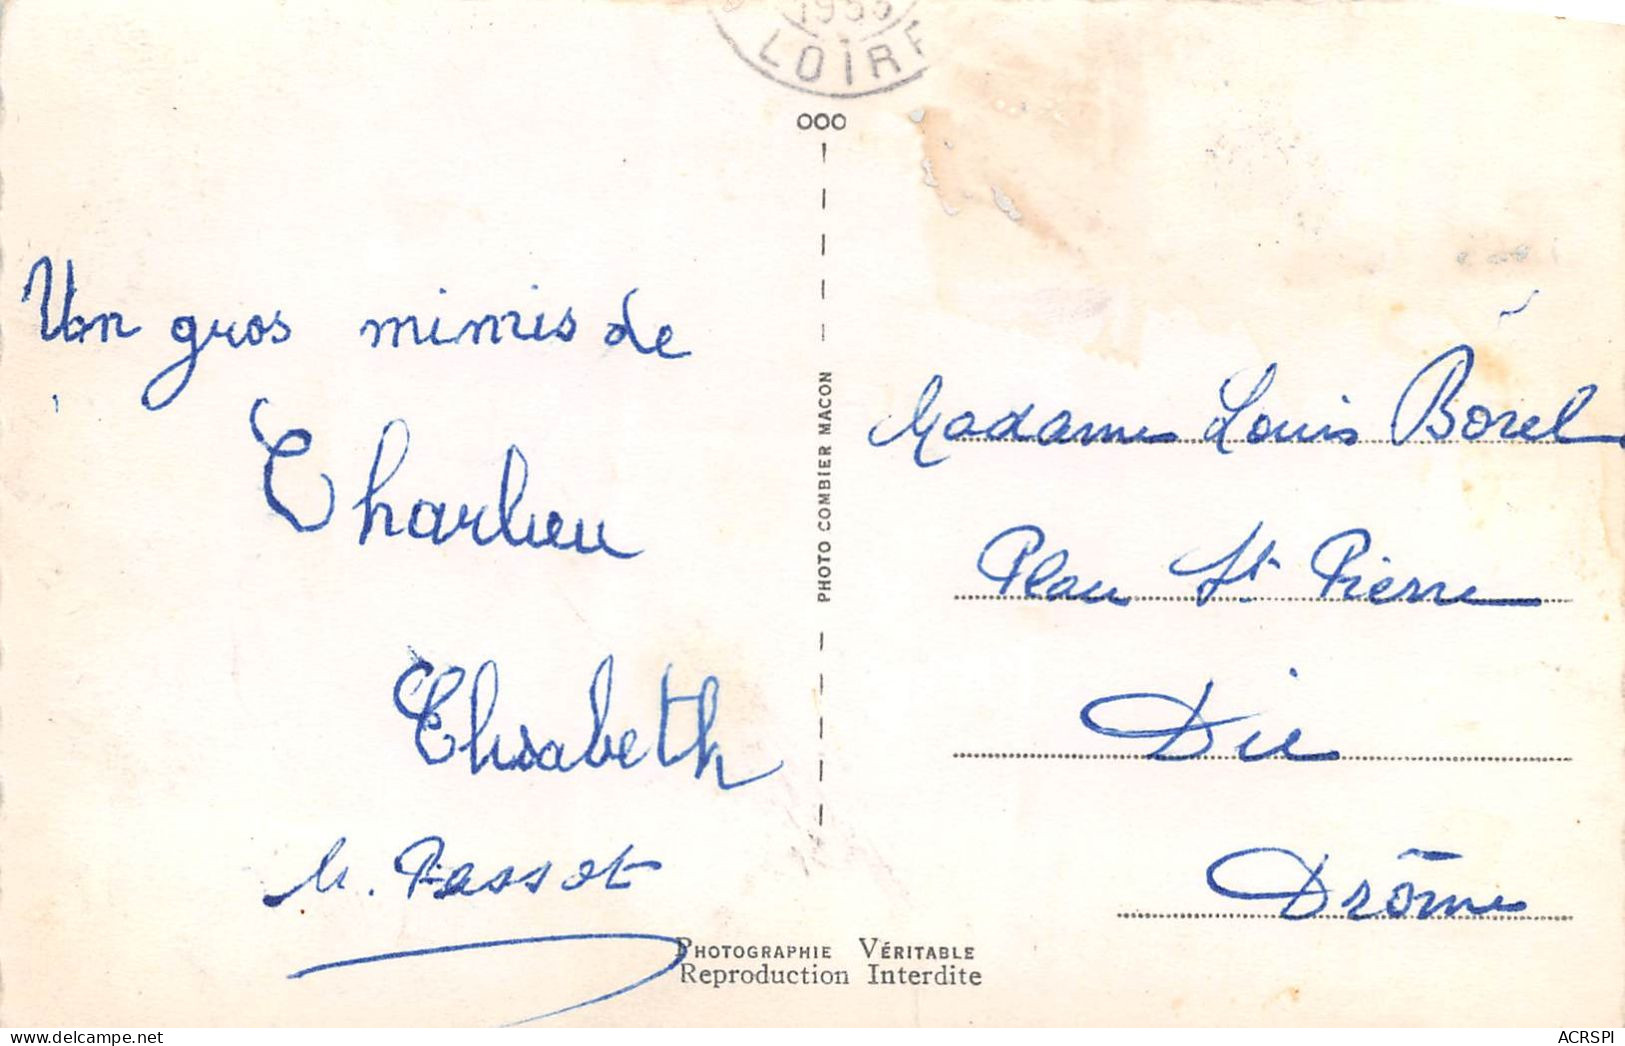 LOIRE
Un gros mimis de
Charlieu
Elisabeth
M. Passot
PHOTO COMBIER MACON
Madame Louis Borel
Place St Pierre
Die
Drôme
PHOTOGRAPHIE VÉRITABLE
Reproduction Interdite
ACRSPI